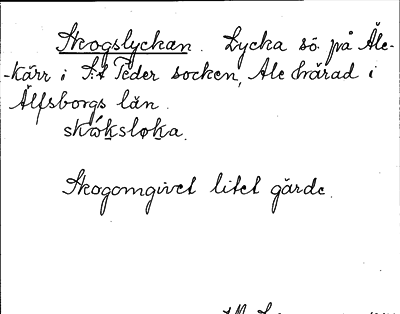 Skogslyckan. Lycka sö. på Äle-
-kärr i S:t Peder socken, Ale härad i
Älfsborgs län.
skóksloka.
Skogomgivet litet gärde.